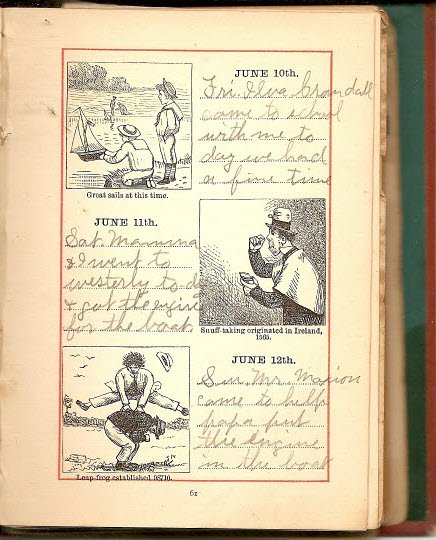 JUNE 10th.
Fri. Elva Crandall
came to school
with me to
day we had
a fine time
Great sails at this time.
JUNE 11th.
Sat. Mamma
& I went to
westerly to-day
& got the engine
for the boat
Snuff-taking originated in Ireland,
1565.
JUNE 12th.
Sun. Mr. Marion
came to help
papa put
the engine
in the boat
Leap-frog established 98710.
61